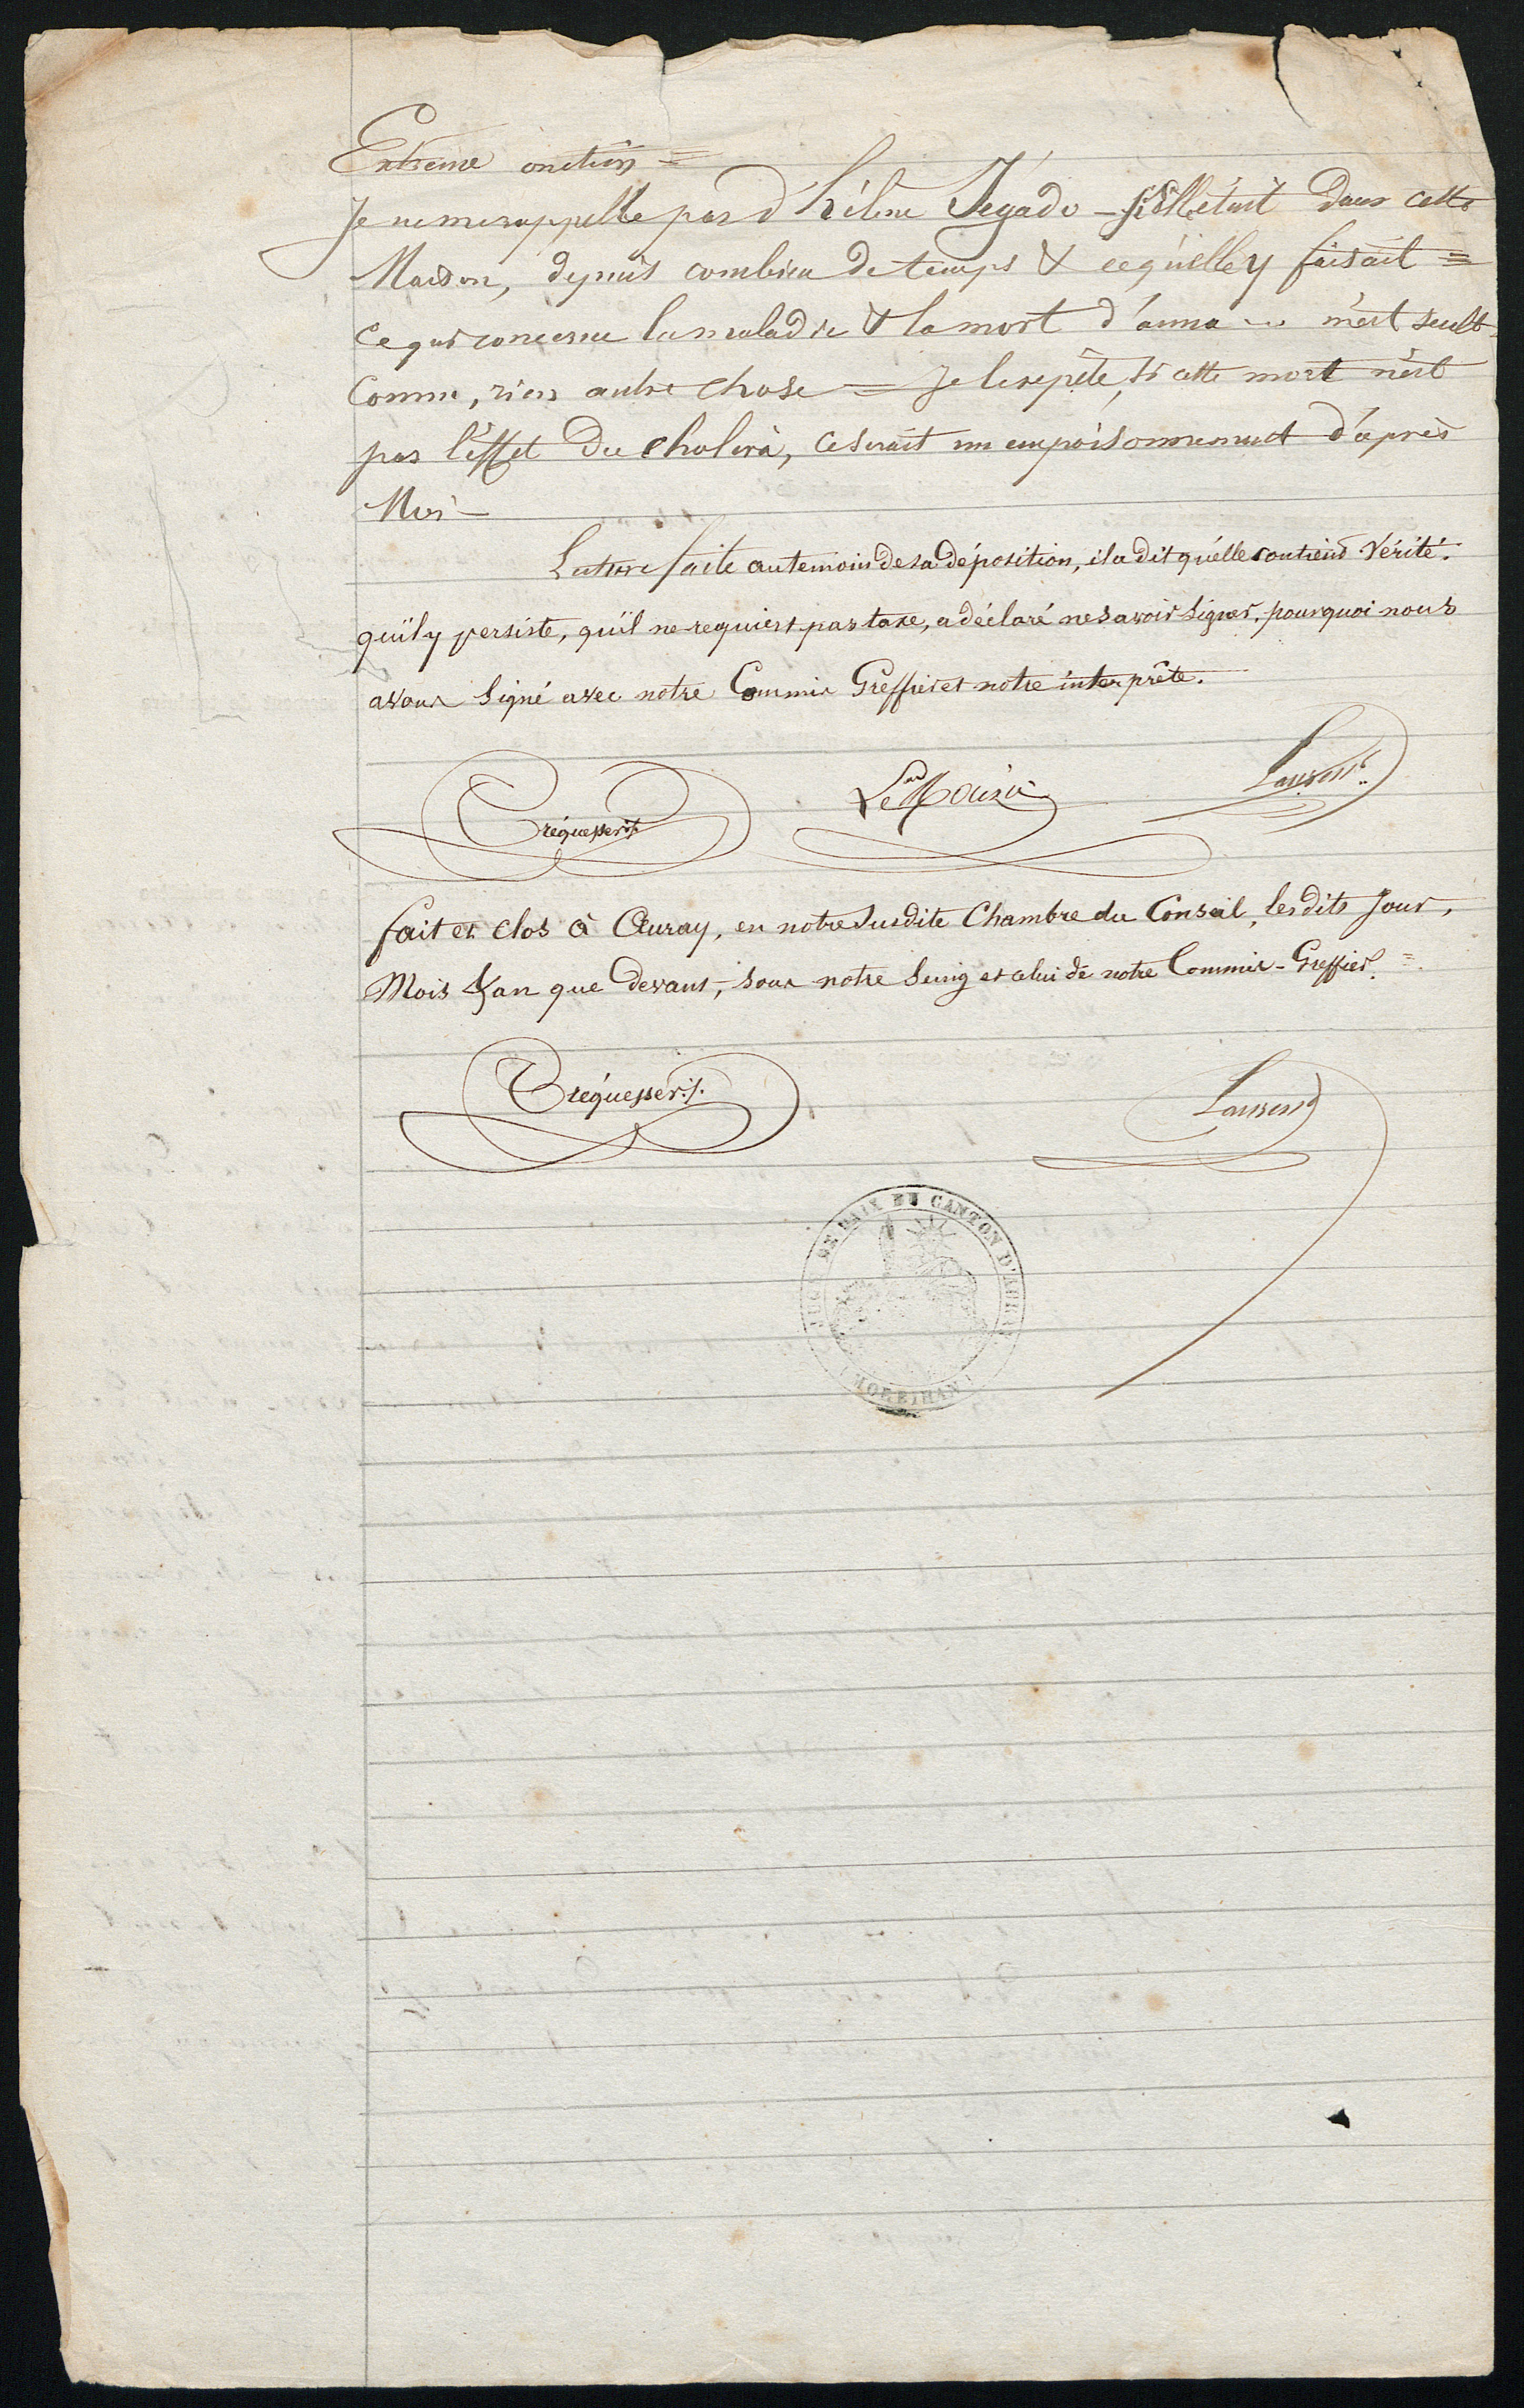 Extreme onction =
Je ne me rappelle pas d'hélène Jégado - si elle était dans cette
Maison, depuis combien de temps & ce qu'elle y faisait =
Ce qui concerne la maladie & la mort d'anna ... m'est seult
Connu, rien autre chose = Je le repète, si cette mort n'est
pas l'effet du cholera, ce serait un empoisonnement d'après
Moi -
Lecture faite au temoin de sa déposition, il a dit qu'elle contient vérité.
qu'il y persiste, qu'il ne requiert pas taxe, a déclaré ne savoir signer, pourquoi nous
avons Signé avec notre Commis Greffier et notre interprête.
Créquesser Laurent
fait et clos à Auray, en notre susdite Chambre du Conseil, les dits Jour,
Mois & an que devant, sous notre Seing et celui de notre Commis-Greffier. =
Créquesser Laurent
JUGE DE PAIX DU CANTON D'AURAY
(MORBIHAN)